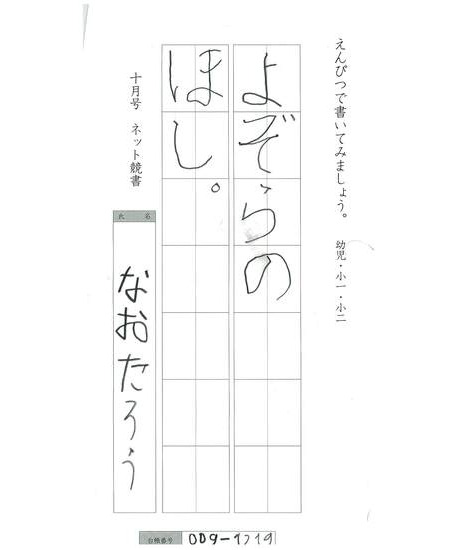 えんぴつで書いてみましょう。　幼児・小一・小二
よぞらの
ほし。
十月号　ネット競書
氏名
なおたろう
台帳番号